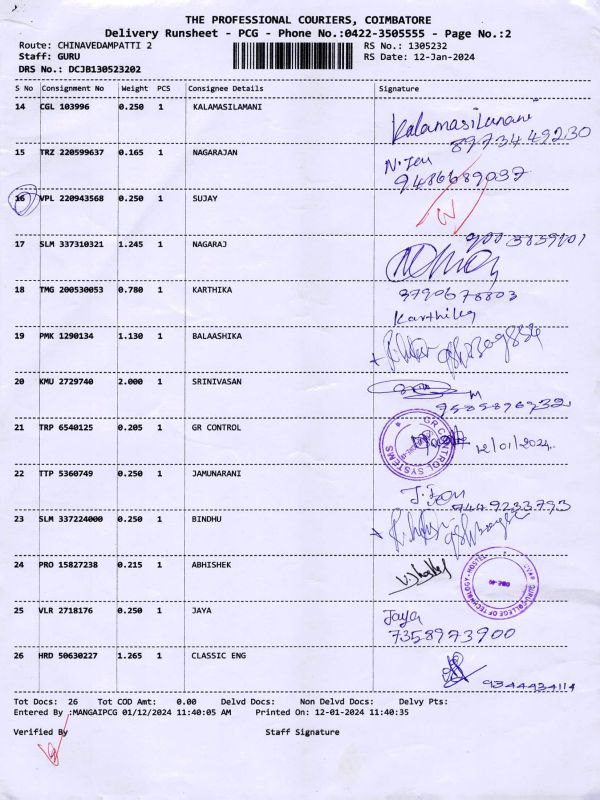 THE PROFESSIONAL COURIERS, COIMBATORE
Delivery Runsheet - PCG - Phone No.:0422-3505555 - Page No.:2
Route: CHINAVEDAMPATTI 2 RS No.: 1305232
Staff: GURU RS Date: 12-Jan-2024
DRS No.: DCJB130523202
S No Consignment No Weight PCS Consignee Details Signature
14 CGL 103996 0.250 1 KALAMASILAMANI Kalamasilamani
8973449230
15 TRZ 220599637 0.165 1 NAGARAJAN
9486689037
16 VPL 220943568 0.250 1 SUJAY
17 SLM 337310321 1.245 1 NAGARAJ
18 TMG 200530053 0.780 1 KARTHIKA
Karthika
19 PMK 1290134 1.130 1 BALAASHIKA
20 KMU 2729740 2.000 1 SRINIVASAN
21 TRP 6540125 0.205 1 GR CONTROL GR CONTROL SYSTEMS 12/01/2024
22 TTP 5360749 0.250 1 JAMUNARANI
9449233793
23 SLM 337224000 0.250 1 BINDHU
24 PRO 15827238 0.215 1 ABHISHEK
25 VLR 2718176 0.250 1 JAYA Jaya
7358973900
26 HRD 50630227 1.265 1 CLASSIC ENG
9344434114
Tot Docs: 26 Tot COD Amt: 0.00 Delvd Docs: Non Delvd Docs: Delvy Pts:
Entered By :MANGAIPCG 01/12/2024 11:40:05 AM Printed On: 12-01-2024 11:40:35
Verified By Staff Signature